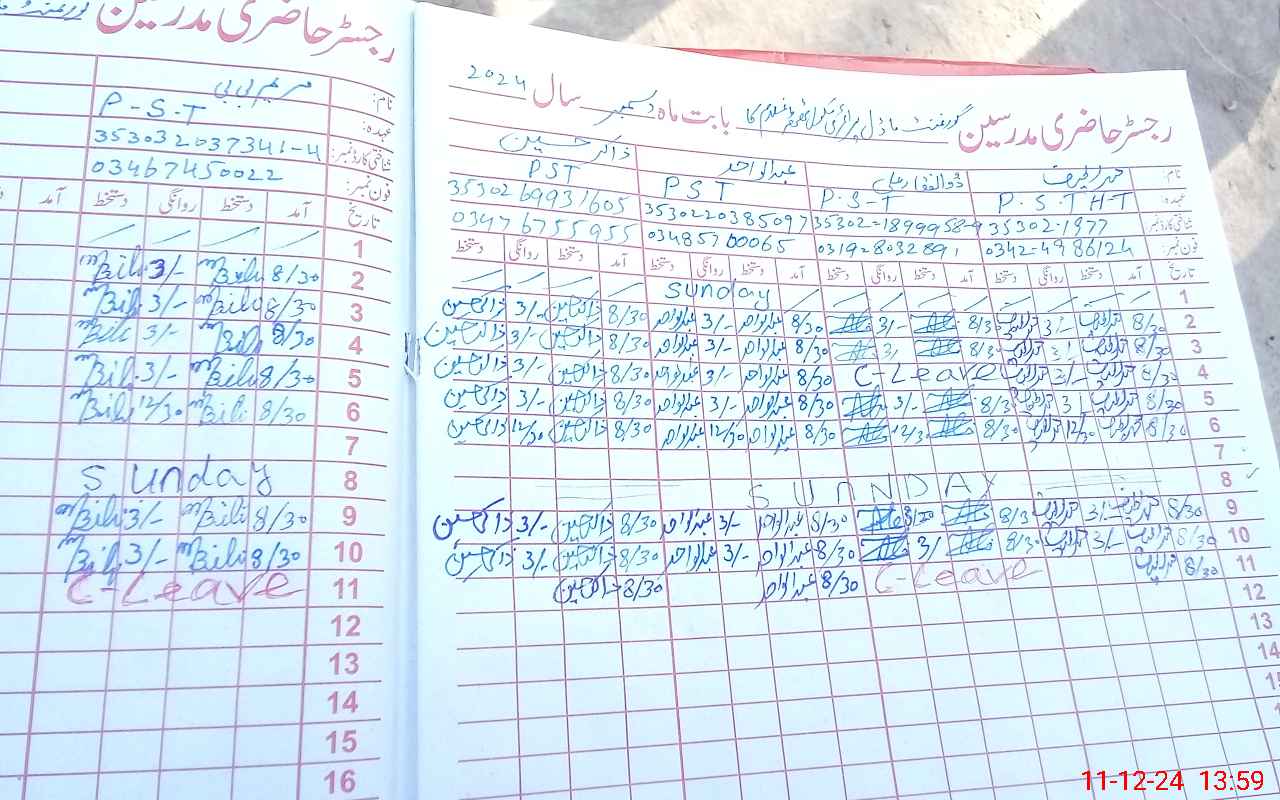 رجسٹر حاضری مدرسین
نام: مریم بی بی
عہدہ: P-S-T
شناختی کارڈ نمبر: 353032037341-4
فون نمبر: 03467450022
تاریخ آمد دستخط روانگی دستخط آمد
1
2 8/30 mBibi 3/- mBibi
3 8/30 mBibi 3/- mBibi
4 8/30 mBibi 3/- mBibi
5 8/30 mBibi 3/- mBibi
6 8/30 mBibi 12/30 mBibi
7
8 Sunday
9 8/30 mBibi 3/- mBibi
10 8/30 mBibi 3/- mBibi
11 C-Leave
12
13
14
15
16
رجسٹر حاضری مدرسین گورنمنٹ ماڈل پرائمری سکول بابت ماہ دسمبر سال 2024
نام: ذوالفقار علی عبدالواحد ذاکر حسین
عہدہ: P.S.T H-T P-S-T PST PST
شناختی کارڈ نمبر: 35302-1977 35302-1899958-9 3530220385097 3530269931605
فون نمبر: 0342-4986124 0319-8032891 03485700065 03476755955
تاریخ آمد دستخط روانگی دستخط آمد دستخط روانگی دستخط آمد دستخط روانگی دستخط آمد دستخط روانگی دستخط
1 Sunday
2 8/30 3/- 8/3 3/- 8/30 عبدالواحد 3/- عبدالواحد 8/30 ذاکر حسین 3/- ذاکر حسین
3 8/30 3/ 8/3 3/ 8/30 عبدالواحد 3/- عبدالواحد 8/30 ذاکر حسین 3/- ذاکر حسین
4 8/30 3/- C-Leave 8/30 عبدالواحد 3/- عبدالواحد 8/30 ذاکر حسین 3/- ذاکر حسین
5 8/30 3/ 8/3 3/- 8/30 عبدالواحد 3/- عبدالواحد 8/30 ذاکر حسین 3/- ذاکر حسین
6 8/30 12/30 8/30 12/30 8/30 عبدالواحد 12/30 عبدالواحد 8/30 ذاکر حسین 12/30 ذاکر حسین
7
8 SUNNDAY
9 8/30 3/- 8/3 8/30 عبدالواحد 3/- عبدالواحد 8/30 ذاکر حسین 3/- ذاکر حسین
10 8/30 3/- 8/3 3/ 8/30 عبدالواحد 3/- عبدالواحد 8/30 ذاکر حسین 3/- ذاکر حسین
11 8/30 C-Leave 8/30 عبدالواحد 8/30 ذاکر حسین
12
13
14
11-12-24 13:59